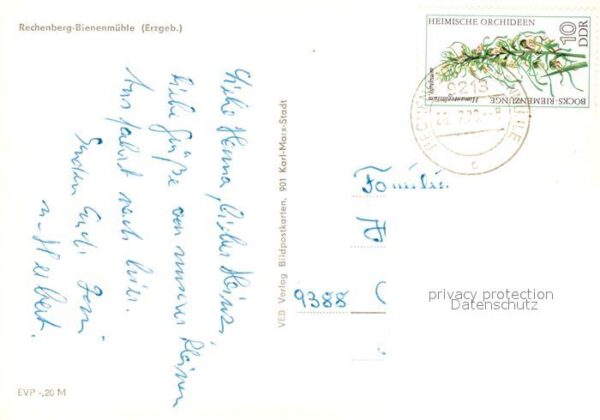 Rechenberg-Bienenmühle (Erzgeb.)
HEIMISCHE ORCHIDEEN
10
DDR
BOCKS-RIEMENZUNGE
Himantoglossum
9213
c
Liebe Hanna, lieber Heinz,
Liebe Grüße von unserer kleinen
Ausfahrt nach hier.
senden Euch
u. Herbert.
VEB Verlag Bildpostkarten, 901 Karl-Marx-Stadt
Familie
9388
privacy protection
Datenschutz
EVP -,20 M